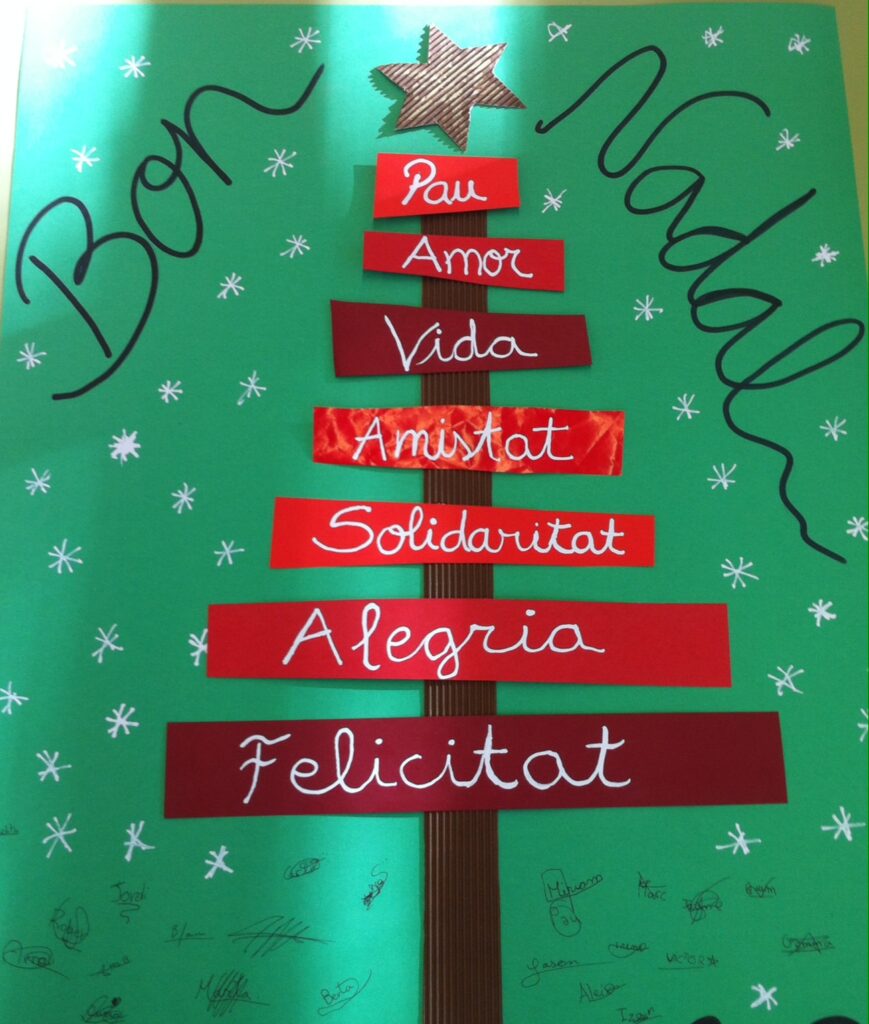 Bon Nadal
Pau
Amor
Vida
Amistat
Solidaritat
Alegria
Felicitat
Jordi
Miriam
Marc
Pau
Berta